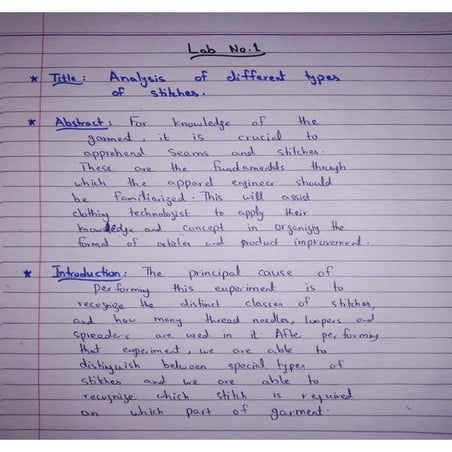 Lab No. 1
* Title: Analysis of different types
of stitches.
* Abstract: For knowledge of the
garment, it is crucial to
apprehend Seams and stitches.
These are the fundamedtls through
which the apparel engineer should
be familiarized. This will assist
clothing technologist to apply their
knowledge and concept in organizing the
format of articles and product improvement.
* Introduction: The principal cause of
performing this experiment is to
recognize the distinct classes of stitches,
and how many thread needles, loopers and
spreaders are used in it. After performing
that experiment, we are able to
distinguish between special types of
stitches and we are able to
recognize which stitch is required
on which part of garment.